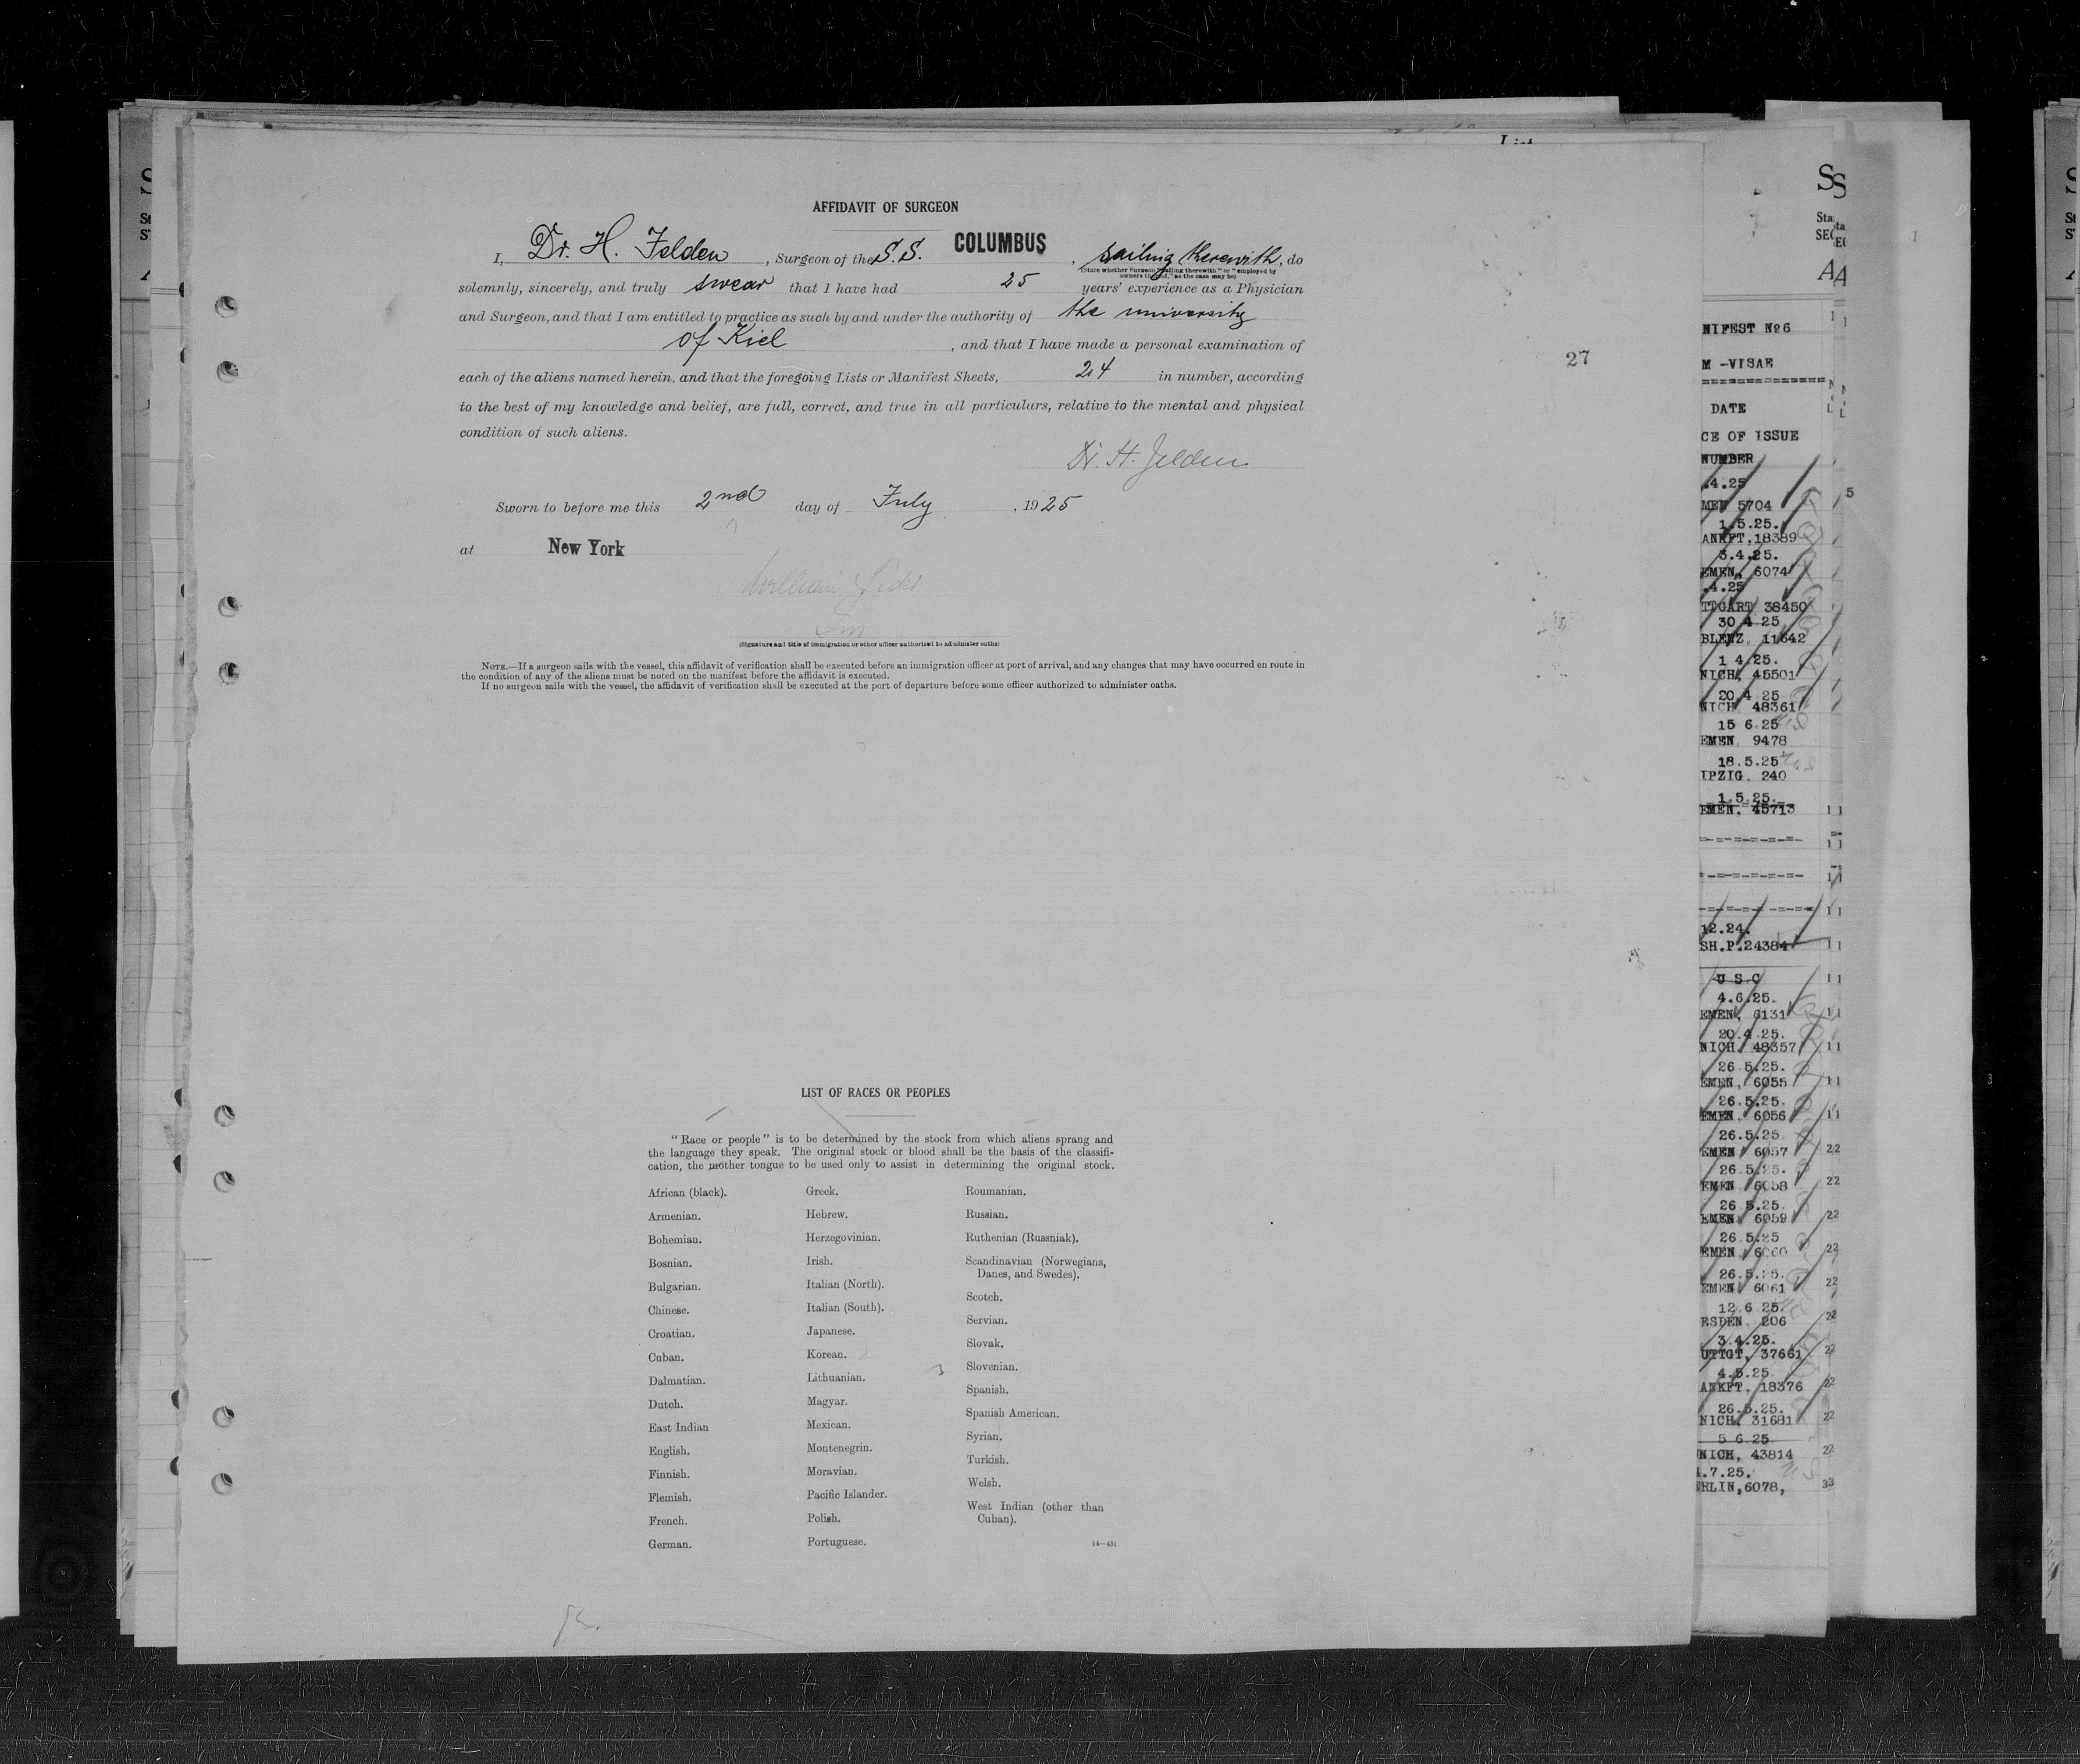 AFFIDAVIT OF SURGEON
I, Dr. H. Felden, Surgeon of the S.S. COLUMBUS, sailing therewith, do
(State whether Surgeon "sailing therewith" or "employed by
owners thereof," as the case may be)
solemnly, sincerely, and truly swear that I have had 25 years' experience as a Physician
and Surgeon, and that I am entitled to practice as such by and under the authority of the university
of Kiel, and that I have made a personal examination of
each of the aliens named herein, and that the foregoing Lists or Manifest Sheets, 24 in number, according
to the best of my knowledge and belief, are full, correct, and true in all particulars, relative to the mental and physical
condition of such aliens.
Dr. H. Felden
Sworn to before me this 2nd day of July, 1925
at New York
William
(Signature and title of immigration or other officer authorized to administer oaths)
NOTE.—If a surgeon sails with the vessel, this affidavit of verification shall be executed before an immigration officer at port of arrival, and any changes that may have occurred en route in
the condition of any of the aliens must be noted on the manifest before the affidavit is executed.
If no surgeon sails with the vessel, the affidavit of verification shall be executed at the port of departure before some officer authorized to administer oaths.
27
LIST OF RACES OR PEOPLES
"Race or people" is to be determined by the stock from which aliens sprang and
the language they speak. The original stock or blood shall be the basis of the classifi-
cation, the mother tongue to be used only to assist in determining the original stock.
African (black).
Armenian.
Bohemian.
Bosnian.
Bulgarian.
Chinese.
Croatian.
Cuban.
Dalmatian.
Dutch.
East Indian
English.
Finnish.
Flemish.
French.
German.
Greek.
Hebrew.
Herzegovinian.
Irish.
Italian (North).
Italian (South).
Japanese.
Korean.
Lithuanian.
Magyar.
Mexican.
Montenegrin.
Moravian.
Pacific Islander.
Polish.
Portuguese.
Roumanian.
Russian.
Ruthenian (Russniak).
Scandinavian (Norwegians,
Danes, and Swedes).
Scotch.
Servian.
Slovak.
Slovenian.
Spanish.
Spanish American.
Syrian.
Turkish.
Welsh.
West Indian (other than
Cuban).
14—431
NIFEST No 6
M -VISAE
DATE
CE OF ISSUE
NUMBER
.4.25
MEN 5704
1.5.25.
ANKFT,18389
3.4.25.
EMEN, 6074
.4.25
TTGART 38450
30 4 25
BLENZ 11642
1 4.25.
NICH, 45501
20 4 25
NICH 48361
15 6 25
EMEN 9478
18.5.25
IPZIG 240
1.5.25.
EMEN. 45713
12.24.
SH.P.24384
U S C
4.6.25.
EMEN, 6131
20.4.25.
NICH. 48357
26 5.25.
EMEN, 6055
26.5.25.
EMEN. 6056
26.5.25
EMEN 6057
26 5.25.
EMEN 6058
26 5.25.
EMEN 6059
26.5.25
EMEN 6060
26.5.25.
EMEN 6061
12.6 25.
ESDEN 206
3.4.25.
UTTGT, 37661
4.5.25
ANKFT. 18376
26.5.25.
NICH, 31681
5 6 25
NICH, 43814
.7.25.
ERLIN,6078,